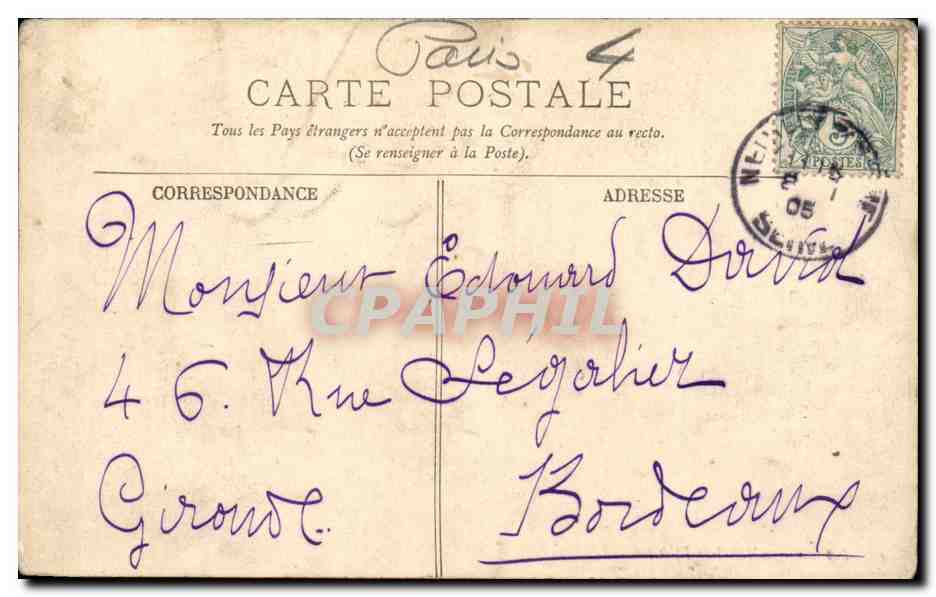 Paris 4
CARTE POSTALE
Tous les Pays étrangers n'acceptent pas la Correspondance au recto.
(Se renseigner à la Poste).
CORRESPONDANCE
ADRESSE
5
POSTES
05
SEINE
Monsieur Edouard David
CPAPHIL
46. Rue Ségalier
Gironde Bordeaux